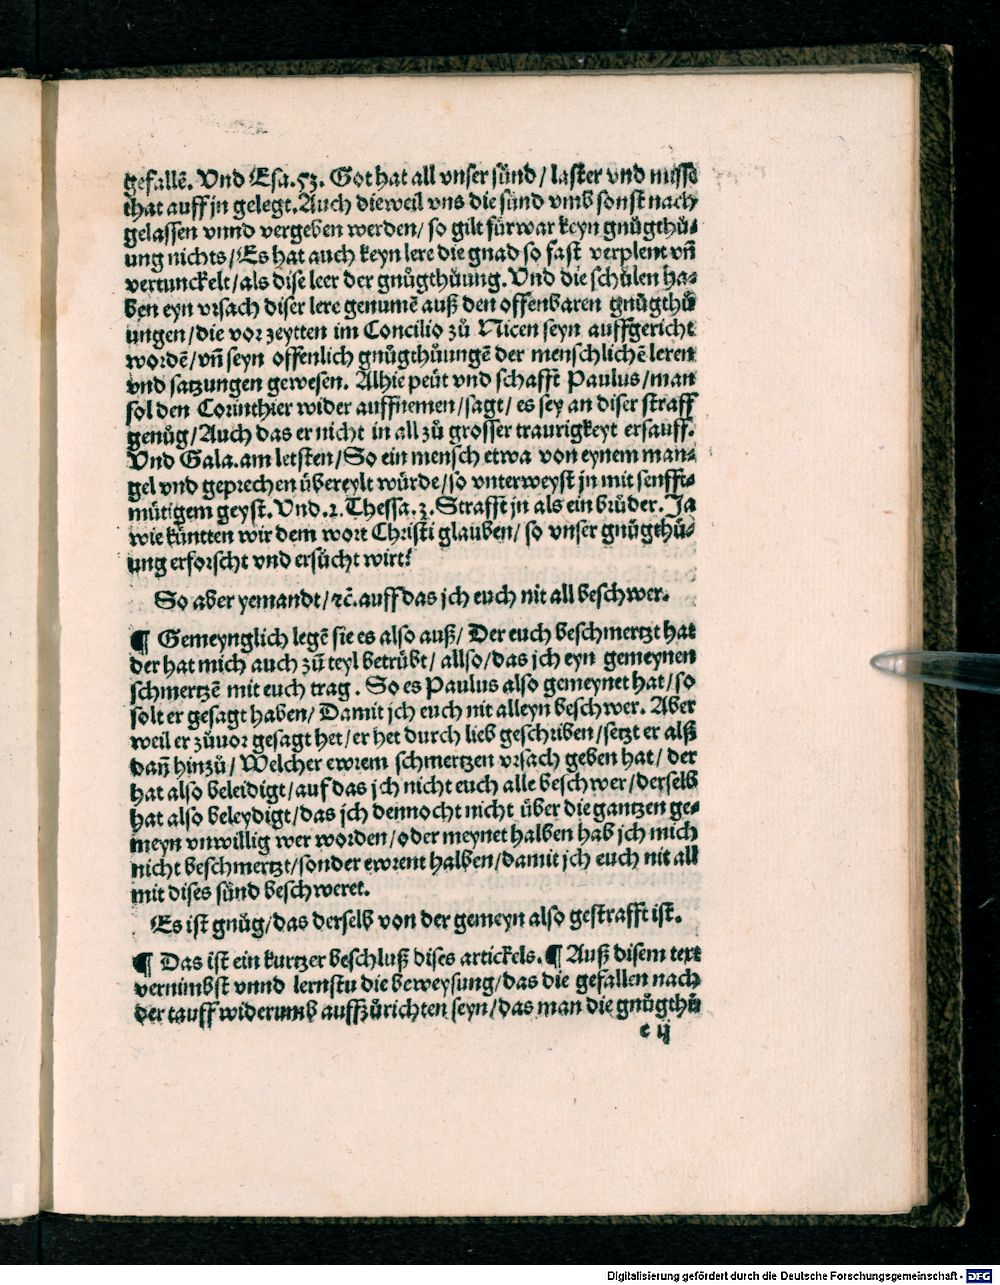 gefallẽ. Vnd Esa.53. Got hat all vnser sünd / laster vnd misse
that auff jn gelegt. Auch dieweil vns die sünd vmb sonst nach
gelassen vnnd vergeben werden / so gilt fürwar keyn gnůgthů⸗
ung nichts / Es hat auch keyn lere die gnad so fast verplent vñ
vertunckelt / als dise leer der gnůgthůung. Vnd die schůlen ha⸗
ben eyn vrsach diser lere genumẽ auß den offenbaren gnůgthů
ungen / die vor zeytten im Concilio zů Nicen seyn auffgericht
wordẽ / vñ seyn offenlich gnůgthůungẽ der menschlichẽ leren
vnd satzungen gewesen. Alhie peüt vnd schafft Paulus / man
sol den Corinthier wider auffnemen / sagt / es sey an diser straff
genůg / Auch das er nicht in all zů grosser traurigkeyt ersauff.
Vnd Gala. am letsten / So ein mensch etwa von eynem man⸗
gel vnd geprechen übereylt würde / so vnterweyst jn mit senfft⸗
mütigem geyst. Vnd .2. Thessa. 3. Strafft jn als ein brůder. Ja
wie küntten wir dem wort Christi glauben / so vnser gnůgthů⸗
ung erforscht vnd ersůcht wirt?
So aber yemandt / ꝛc̃. auff das jch euch nit all beschwer.
¶ Gemeynglich legẽ sie es also auß / Der euch beschmertzt hat
der hat mich auch zů teyl betrübt / allso / das jch eyn gemeynen
schmertzẽ mit euch trag. So es Paulus also gemeynet hat / so
solt er gesagt haben / Damit jch euch nit alleyn beschwer. Aber
weil er zůuor gesagt het / er het durch lieb geschriben / setzt er alß
dañ hinzů / Welcher ewrem schmertzen vrsach geben hat / der
hat also beleidigt / auf das jch nicht euch alle beschwer / derselb
hat also beleydigt / das jch dennocht nicht über die gantzen ge⸗
meyn vnwillig wer worden / oder meynet halben hab jch mich
nicht beschmertzt / sonder ewrent halben / damit jch euch nit all
mit dises sünd beschweret.
Es ist gnůg / das derselb von der gemeyn also gestrafft ist.
¶ Das ist ein kurtzer beschluß dises artickels. ¶ Auß disem text
vernimbst vnnd lernstu die beweysung / das die gefallen nach
der tauff widerumb auffzůrichten seyn / das man die gnůgthů
c ij
Digitalisierung gefördert durch die Deutsche Forschungsgemeinschaft - DFG